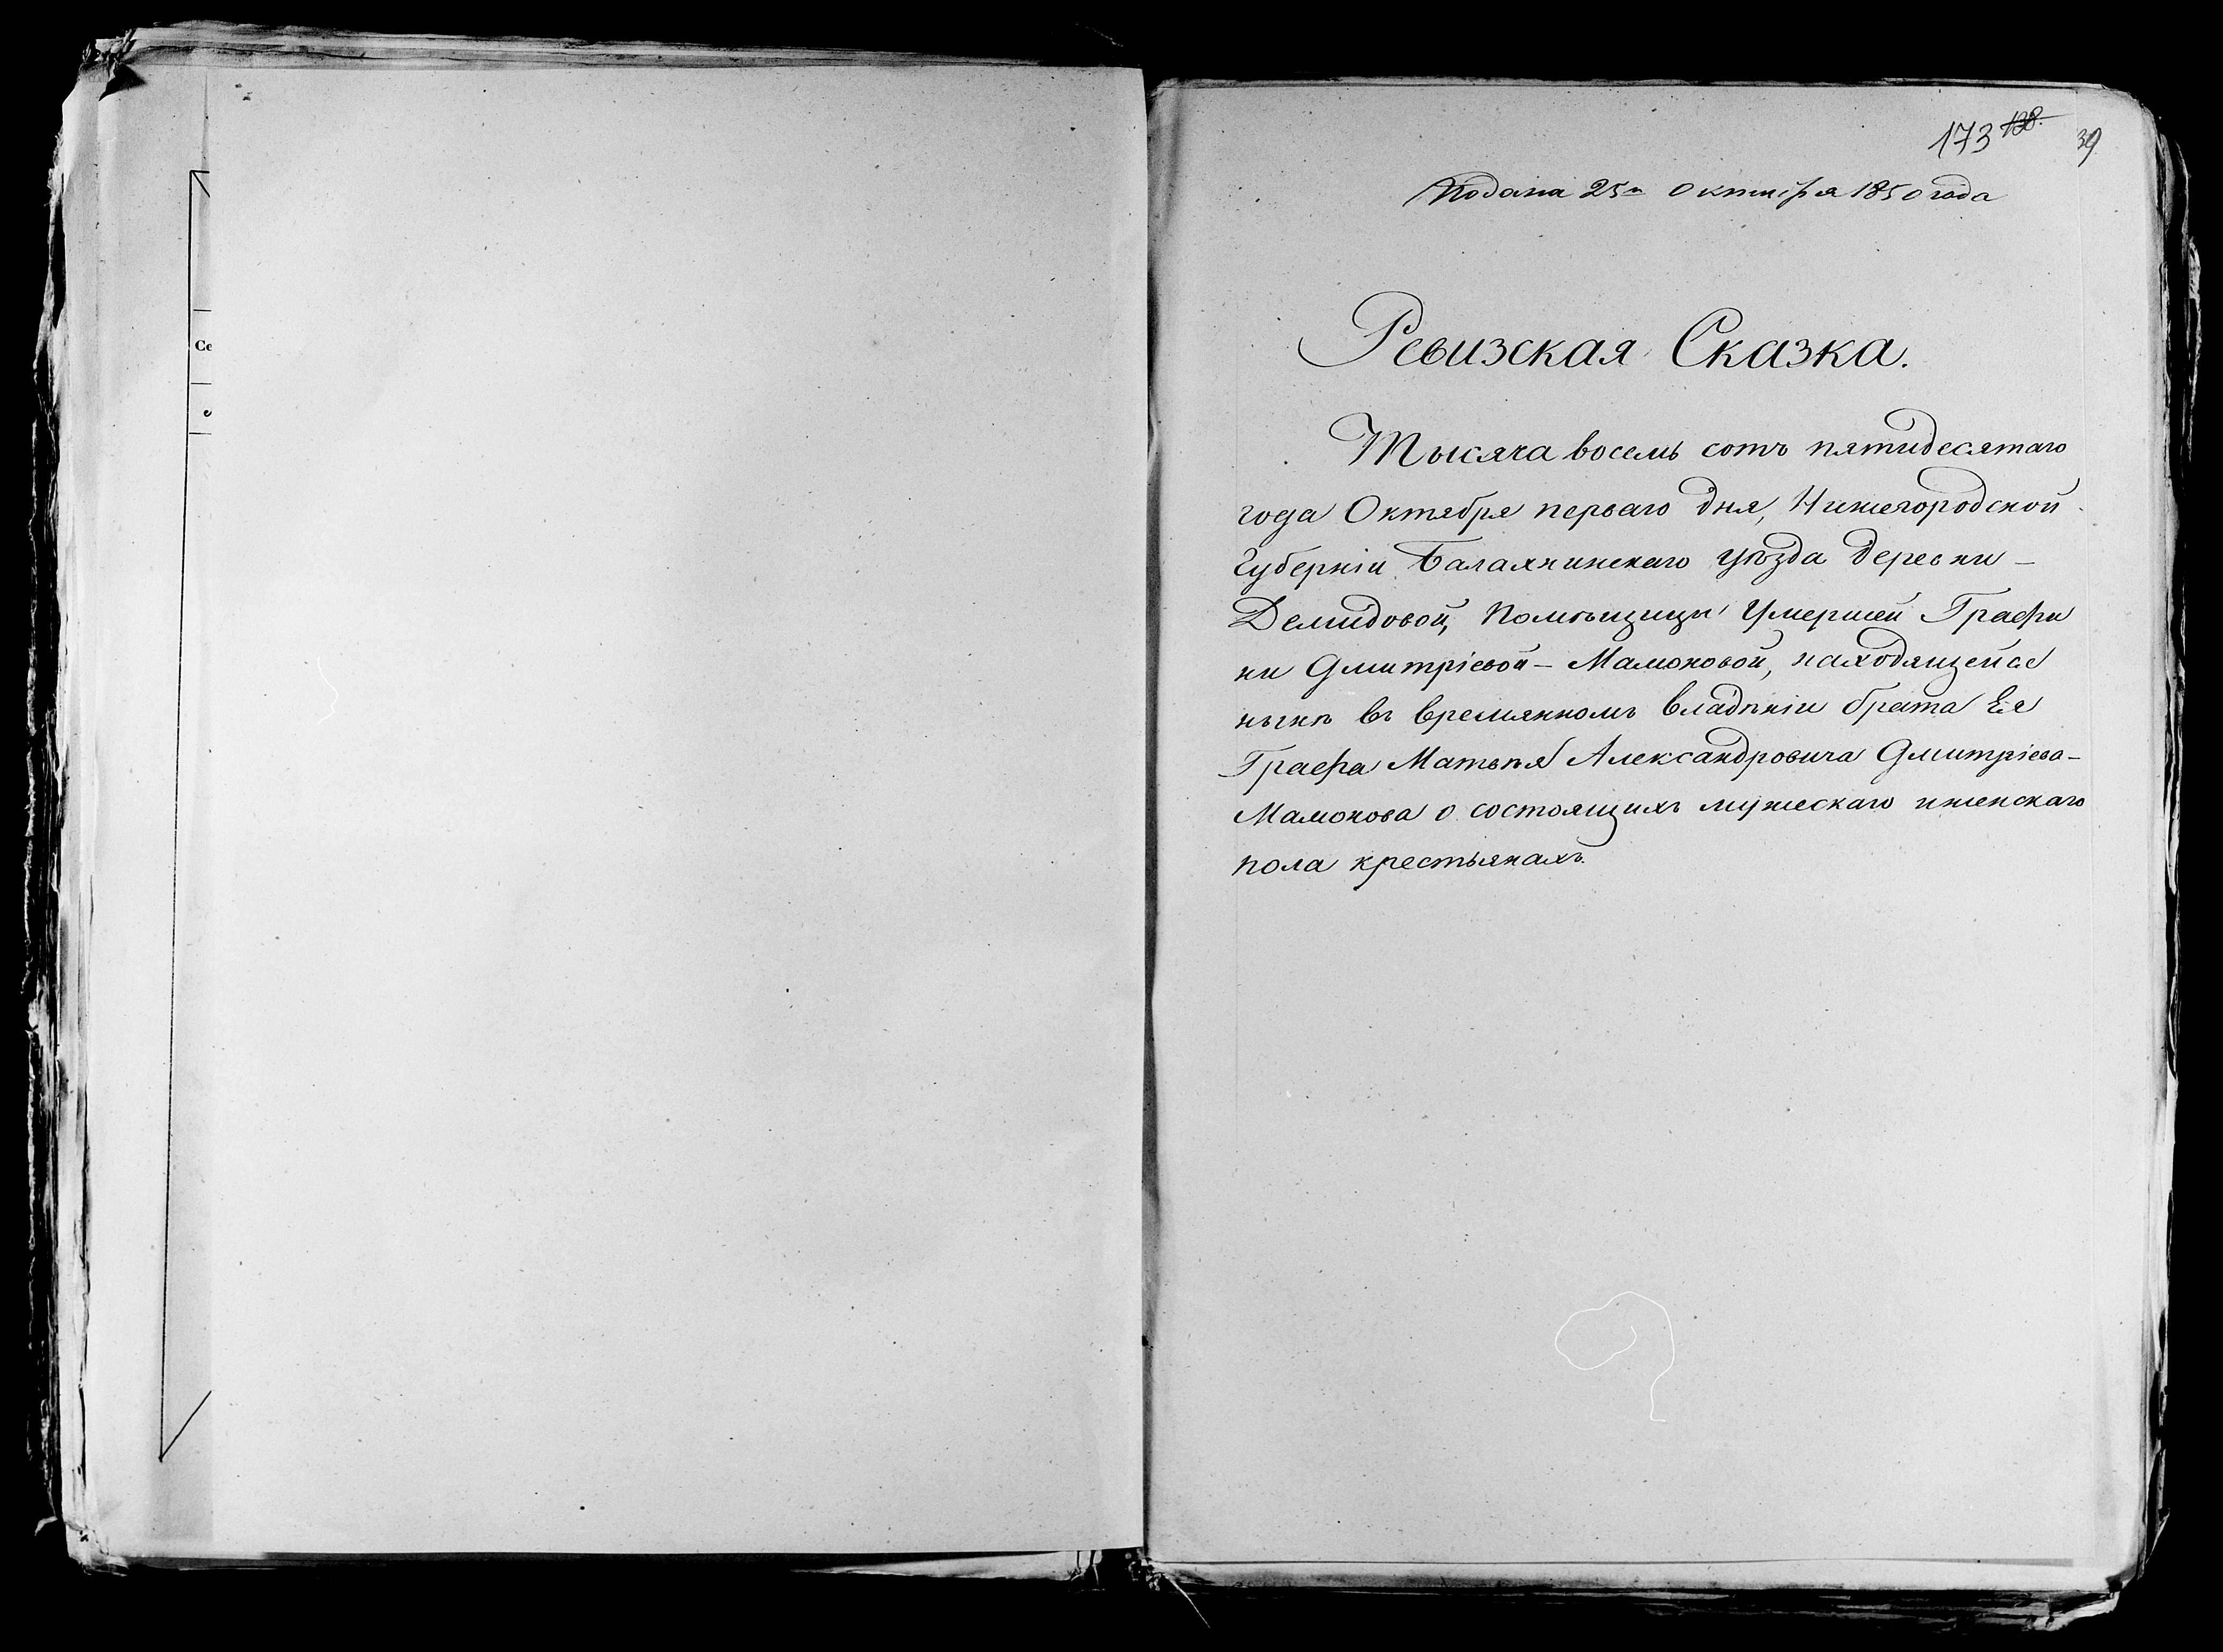 Се
173 138. 39
Подана 25го Октября 1850 года
Ревизская Сказка.
Тысяча восемь сотъ пятидесятаго
года Октября перваго дня, Нижегородской
Губерніи Балахнинскаго уѣзда деревни –
Демидовой, Помѣщицы Умершей Графи
ни Дмитріевой – Мамоновой, находящейся
нынѣ въ времянномъ владѣніи брата Ея
Графа Матвѣя Александровича Дмитріева –
Мамонова о состоящихъ мужескаго и женскаго
пола крестьянахъ.